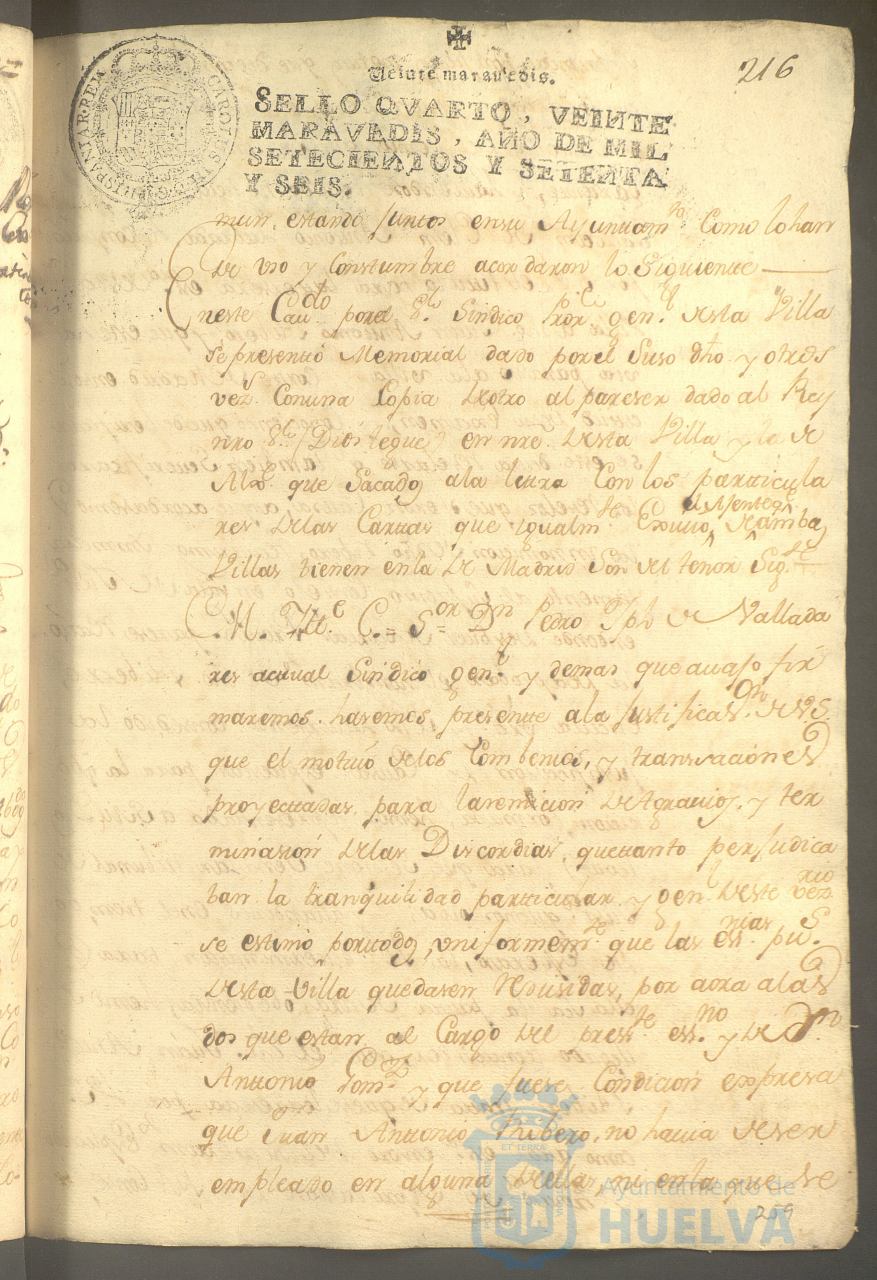 216
Veinte maravedis.
SELLO QVARTO, VEINTE
MARAVEDIS, AÑO DE MIL
SETECIENTOS Y SETENTA
Y SEIS.
mun, estando juntos en su Ayuntam.to Como lo han
de uso y Constumbre acordaron lo Siguiente
En este Cav.do por el S.r Sindico Pror. gen.l de esta Villa
se presentó Memorial dado por el Suso dho y otros
vez.s Con una Copia de otro al pareser dado al Rey
nro S.r (Dios le gue) en nre. de esta Villa y la de
que sacados a la letra Con los particula
res de las Cartas que igualm.te de ambas
Villas tienen en la de Madrid Son del tenor Sig.te
M. Itt.e C. = S.or D.n Pedro Jph de Vallada
res actual Sindico gen.l y demas que avajo fir
maremos. hasemos presente a la justificas.on de V.S.
que el motivo de los Combenios, y transaciones
proyectadas para la remicion de Agravios, y ter
minasion de las Discordias, que tanto perjudica
ban la tranquilidad particular y gen.l de este vez.rio
se estimó por todos, uniformem.te que las es.nias pu.s
de esta Villa quedasen redusidas, por aora a las
dos que estan al Cargo del pres.te es.no y de D.n
Antonio y que fuese Condicion expresa
que Juan Antonio Ribero, no havia de ser
empleado en alguna de ellas, ni en la que de
259
Ayuntamiento de
HUELVA